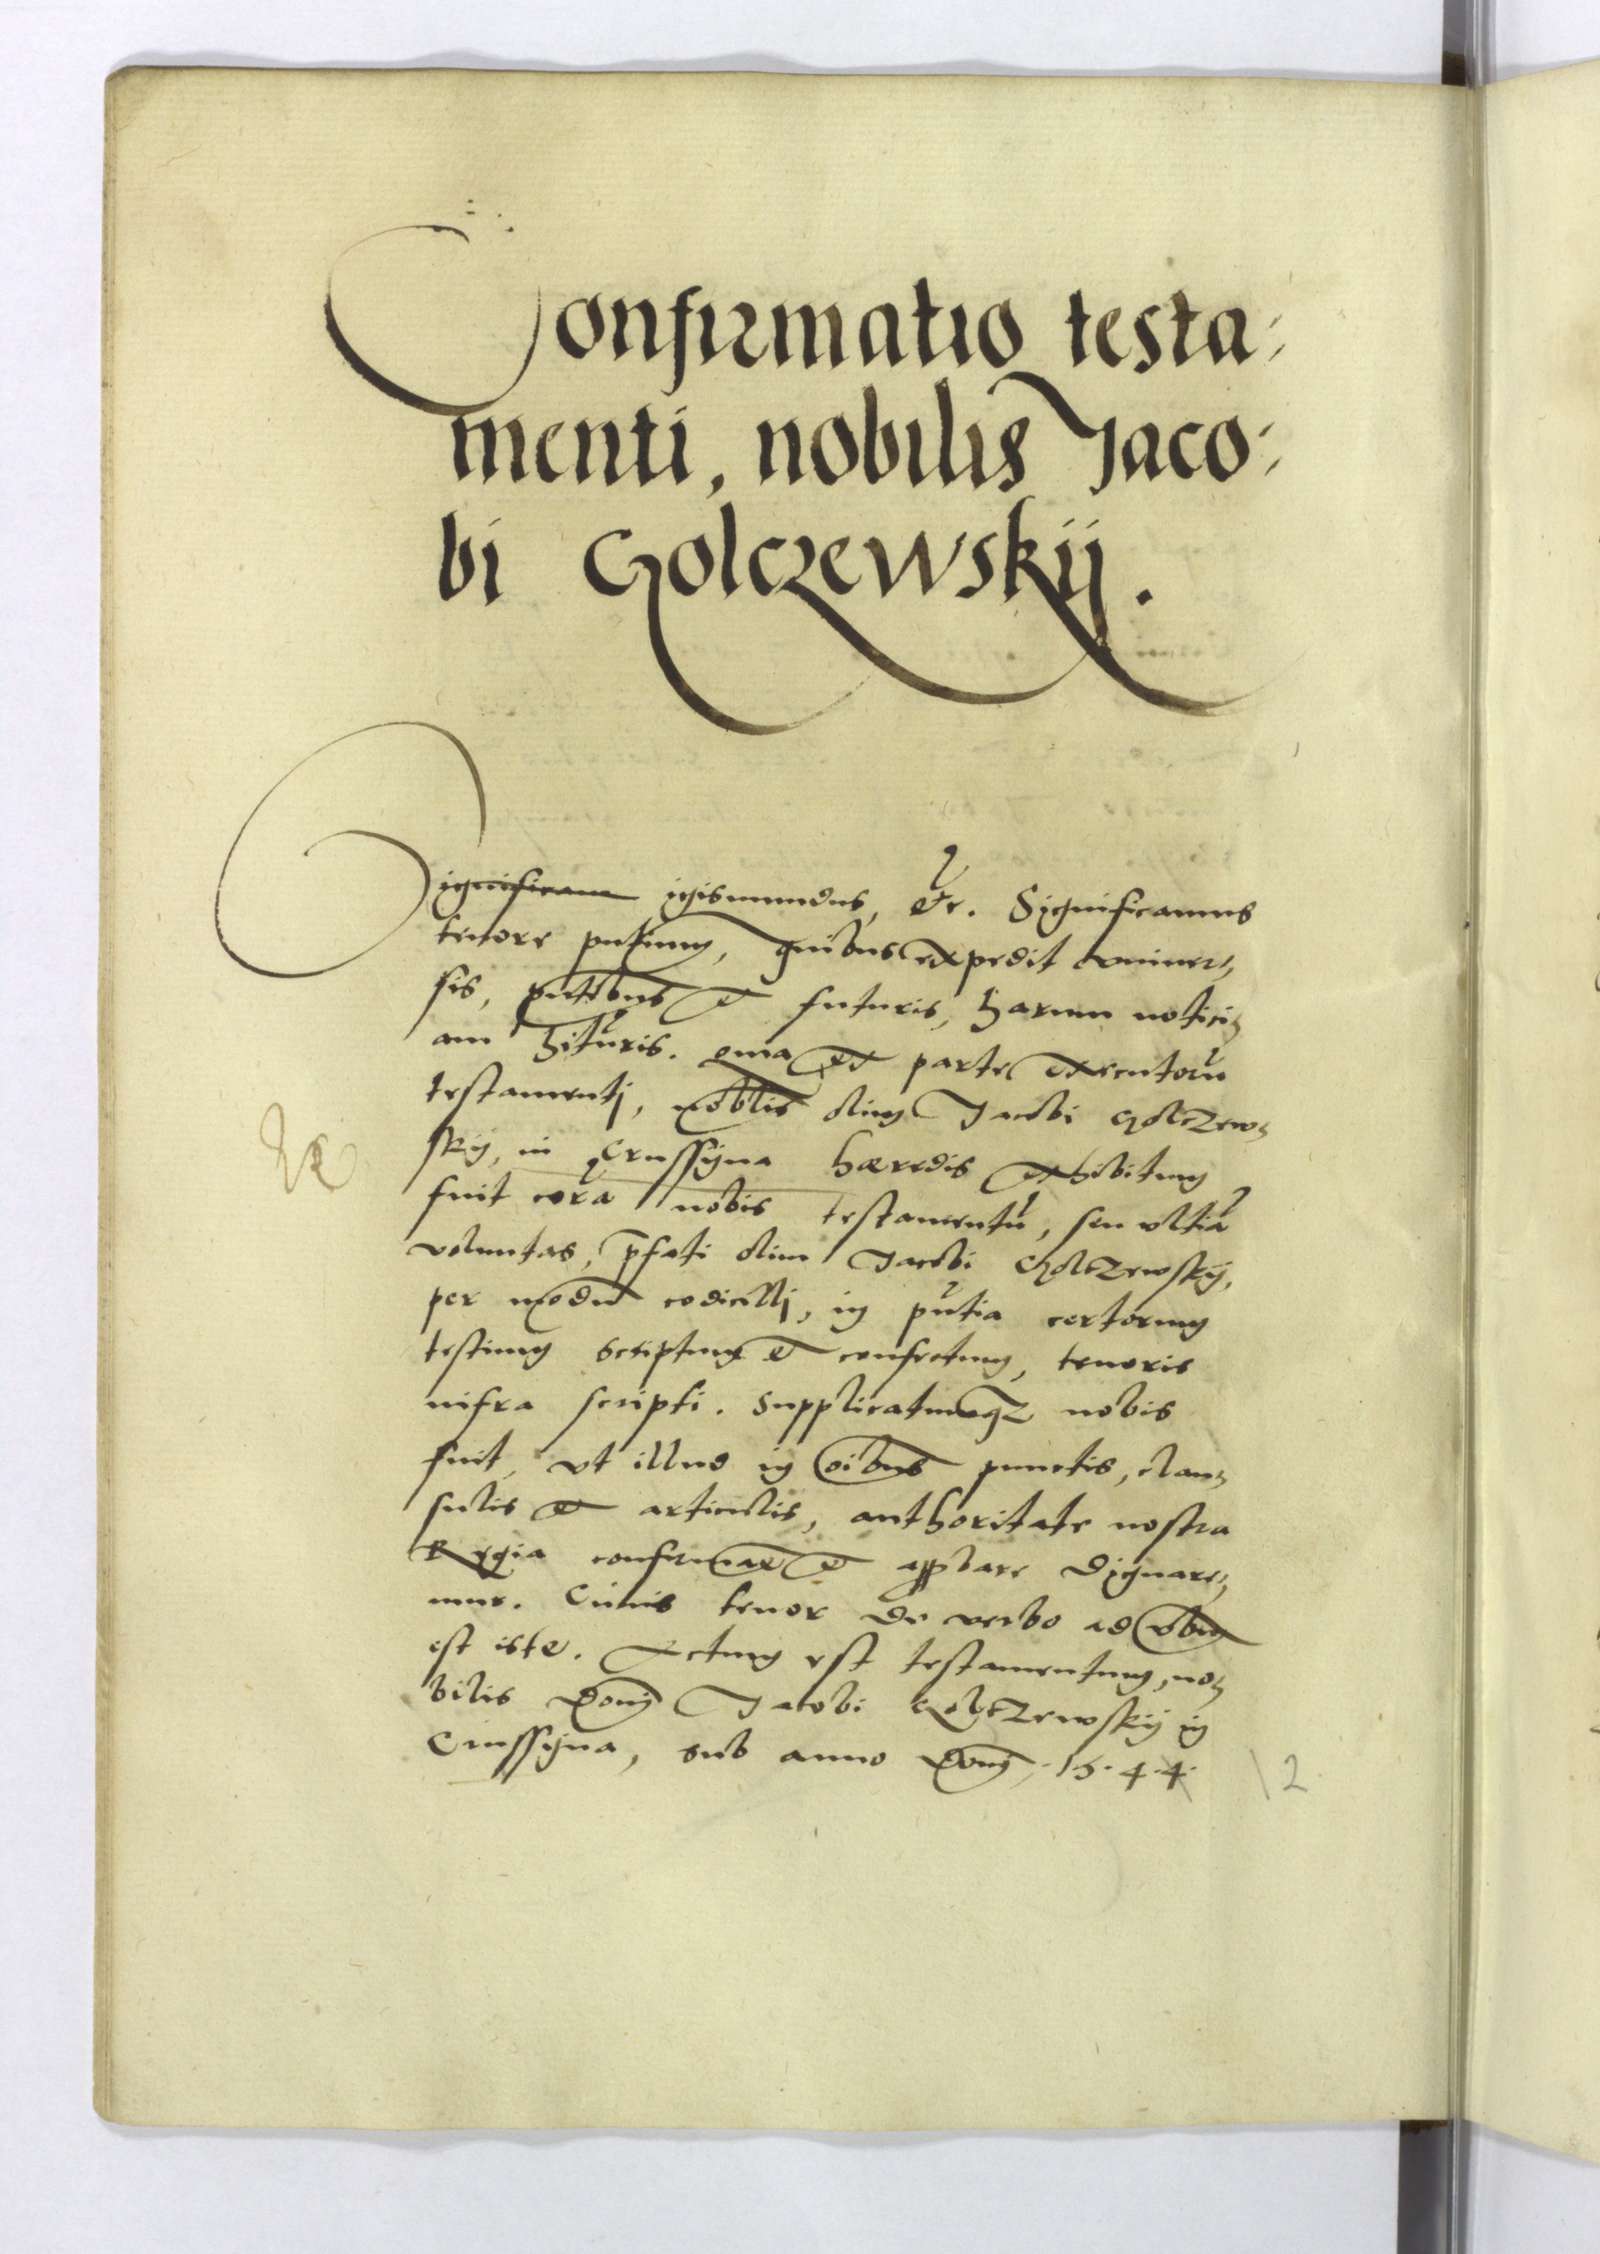 Confirmatio testa⸗
menti, nobilis Jaco⸗
bi Czolczewskij.
Significam igismundus, etc. Significamus
tenore pntium, quibus expedit vniuer⸗
sis, pntibus et futuris, harum notici⸗
am hituris. qma ex parte executorũ
testamentj, noblis olim Jacobi Czolczews⸗
kij, in Crussyna hæredis exhibitum
fuit corã nobis testamentũ, seu vltia
voluntas, pfati olim Jacobi Czolczewskij,
per modũ codicillj, in pntia certorum
testium scriptum et confectum, tenoris
infra scripti. Supplicatumqz nobis
fuit, vt illud in oibus punctis, clau⸗
sulis et articulis, authoritate nostra
Regia confirmare et approbare dignare⸗
mur. Cuius tenor de verbo ad vbum
est iste. Actum est testamentum, no⸗
bilis Domj Jacobi Czolczewskij in
Crussyna, sub anno Domj, 1544
12